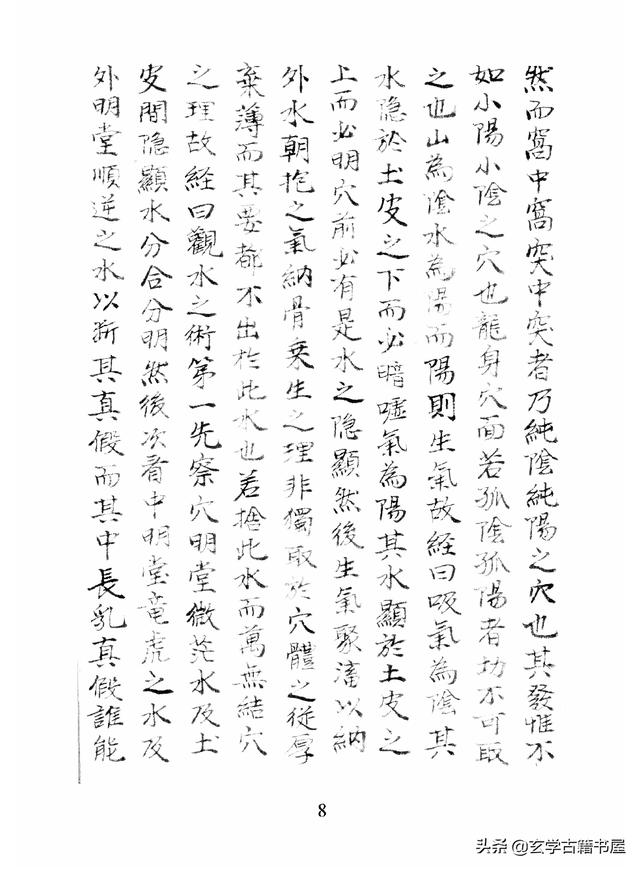 然而窩中窩突中突者乃純陰純陽之穴也其發惟不
如小陽小陰之穴也龍身穴面若孤陰孤陽者切不可取
之也山為陰水為陽而陽則生氣故経曰吸氣為陰其
水隐於土皮之下而必暗噓氣為陽其水顯於土皮之
上而必明穴前必有是水之隐顯然後生氣聚潘以納
外水朝抱之氣納骨乗生之理非獨取於穴體之従厚
棄薄而其要都不出於此水也若捨此水而萬無結穴
之理故経曰觀水之術第一先察穴明堂微茫水及土
皮間隐顯水分合分明然後次看中明堂竜虎之水及
外明堂順逆之水以斯其真假而其中長乳真假誰能
8
头条 @玄学古籍书屋